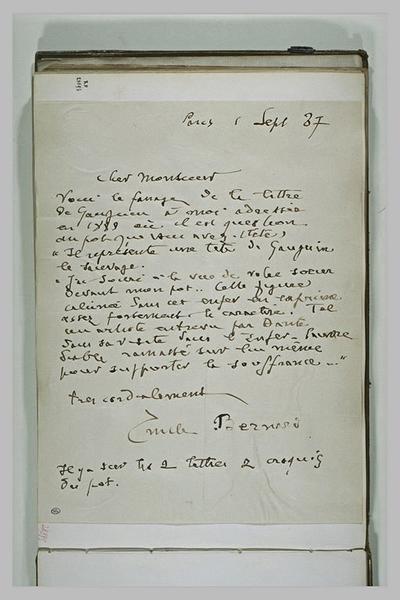 Paris 1 Sept 37
Cher Monsieur
Voici le passage de la lettre
de Gauguin à moi adressée
en 1889 où il est question
du pot que vous avez
« Il représente une tête de Gauguin
le sauvage.
la vue de votre soeur
devant mon pot.. Cette figure
calcinée dans cet enfer en exprime
assez fortement le caractère. Tel
un artiste entrevu par Dante
dans sa visite dans l'Enfer - Pauvre
diable ramassé sur lui même
pour supporter la souffrance ... "
Très cordialement
Emile Bernard
Il y a sur les 2 lettres 2 croquis
du pot.